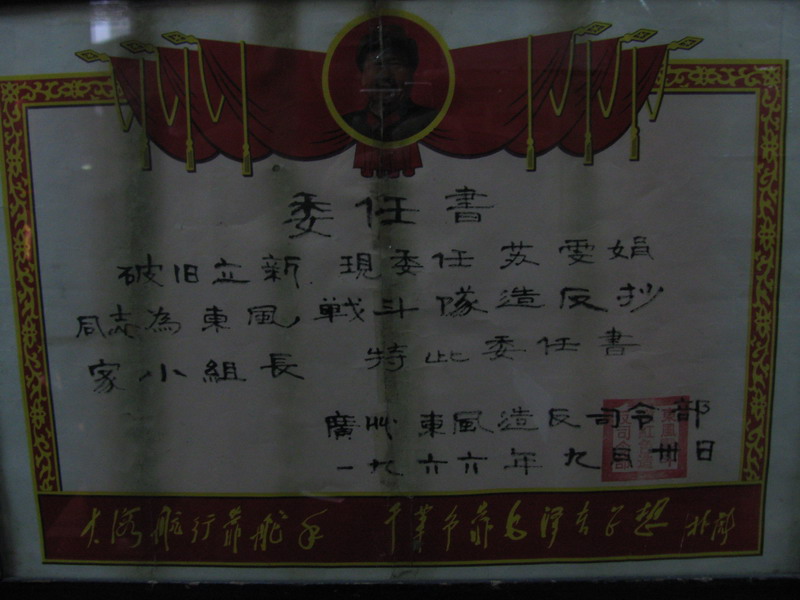 委任書
破旧立新 現委任 苏雯娟
同志為東風,戦斗隊造反抄
家小組長 特此委任書
廣州東風造反司令部
一九六六年九月卅日
大海航行靠舵手 干革命靠毛泽东思想 林彪